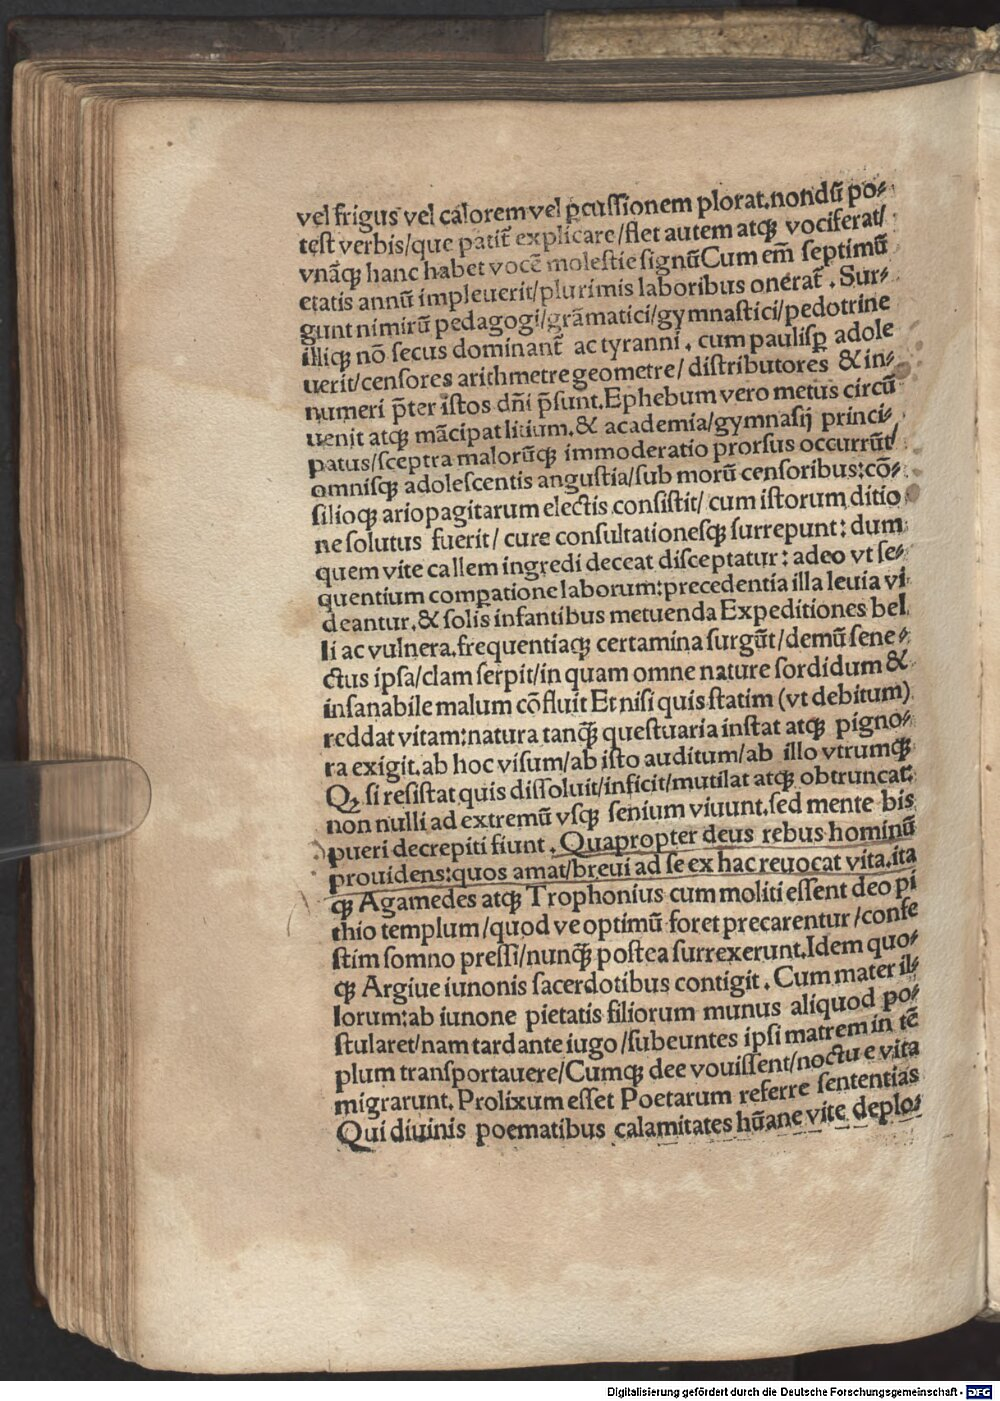 vel frigus vel calorem vel ꝑcuſſionem plorat.nondū po⸗
teſt verbis/que patit̄ explicare/flet autem atqꝫ vociferat/
vnāqꝫ hanc habet vocē moleſtie ſignūCum em̄ ſeptimū
etatis annū impleuerit/plurimis laboribus onerat̄ . Sur⸗
gunt nimirū pedagogi/grāmatici/gymnaſtici/pedotrine
illiqꝫ nō ſecus dominant̄ ac tyranni . cum pauliſꝑ adole
uerit/cenſores arithmetre geometre/ diſtributores & in⸗
numeri p̄ter iſtos dn̄i p̄ſunt.Ephebum vero metus circū
uenit atqꝫ mācipat litium.& academia/gymnaſij princi⸗
patus/ſceptra malorūqꝫ immoderatio prorſus occurrūt/
omniſqꝫ adoleſcentis anguſtia/ſub morū cenſoribus:cō⸗
ſilioqꝫ ariopagitarum electis conſiſtit/ cum iſtorum ditio
ne ſolutus fuerit/ cure conſultationeſqꝫ ſurrepunt: dum
quem vite callem ingredi deceat diſceptatur: adeo vt ſe⸗
quentium comꝑatione laborum:precedentia illa leuia vi
deantur.& ſolis infantibus metuenda Expeditiones bel
li ac vulnera.frequentiaqꝫ certamina ſurgūt/demū ſene⸗
ctus ipſa/clam ſerpit/in quam omne nature ſordidum &
inſanabile malum cōfluit Et niſi quis ſtatim (vt debitum)
reddat vitam:natura tanqꝫ̄ queſtuaria inſtat atqꝫ pigno⸗
ra exigit.ab hoc viſum/ab iſto auditum/ab illo vtrumqꝫ
Qꝫ ſi reſiſtat quis diſſoluit/inficit/mutilat atqꝫ obtruncat:
non nulli ad extremū vſqꝫ ſenium viuunt.ſed mente bis
pueri decrepiti fiunt . Quapropter deus rebus hominū
prouidens:quos amat/breui ad ſe ex hac reuocat vita.ita
qꝫ Agamedes atqꝫ Trophonius cum moliti eſſent deo pi
thio templum/quod ve optimū foret precarentur/confe
ſtim ſomno preſſi/nunqꝫ̄ poſtea ſurrexerunt.Idem quo⸗
qꝫ Argiue iunonis ſacerdotibus contigit . Cum mater il⸗
lorum:ab iunone pietatis filiorum munus aliquod po⸗
ſtularet/nam tardante iugo/ſubeuntes ipſi matrem in tē
plum tranſportauere/Cumqꝫ dee vouiſſent/noctu e vita
migrarunt. Prolixum eſſet Poetarum referre ſententias
Qui diuinis poematibus calamitates hūane vite deplo⸗
Digitalisierung gefördert durch die Deutsche Forschungsgemeinschaft - DFG